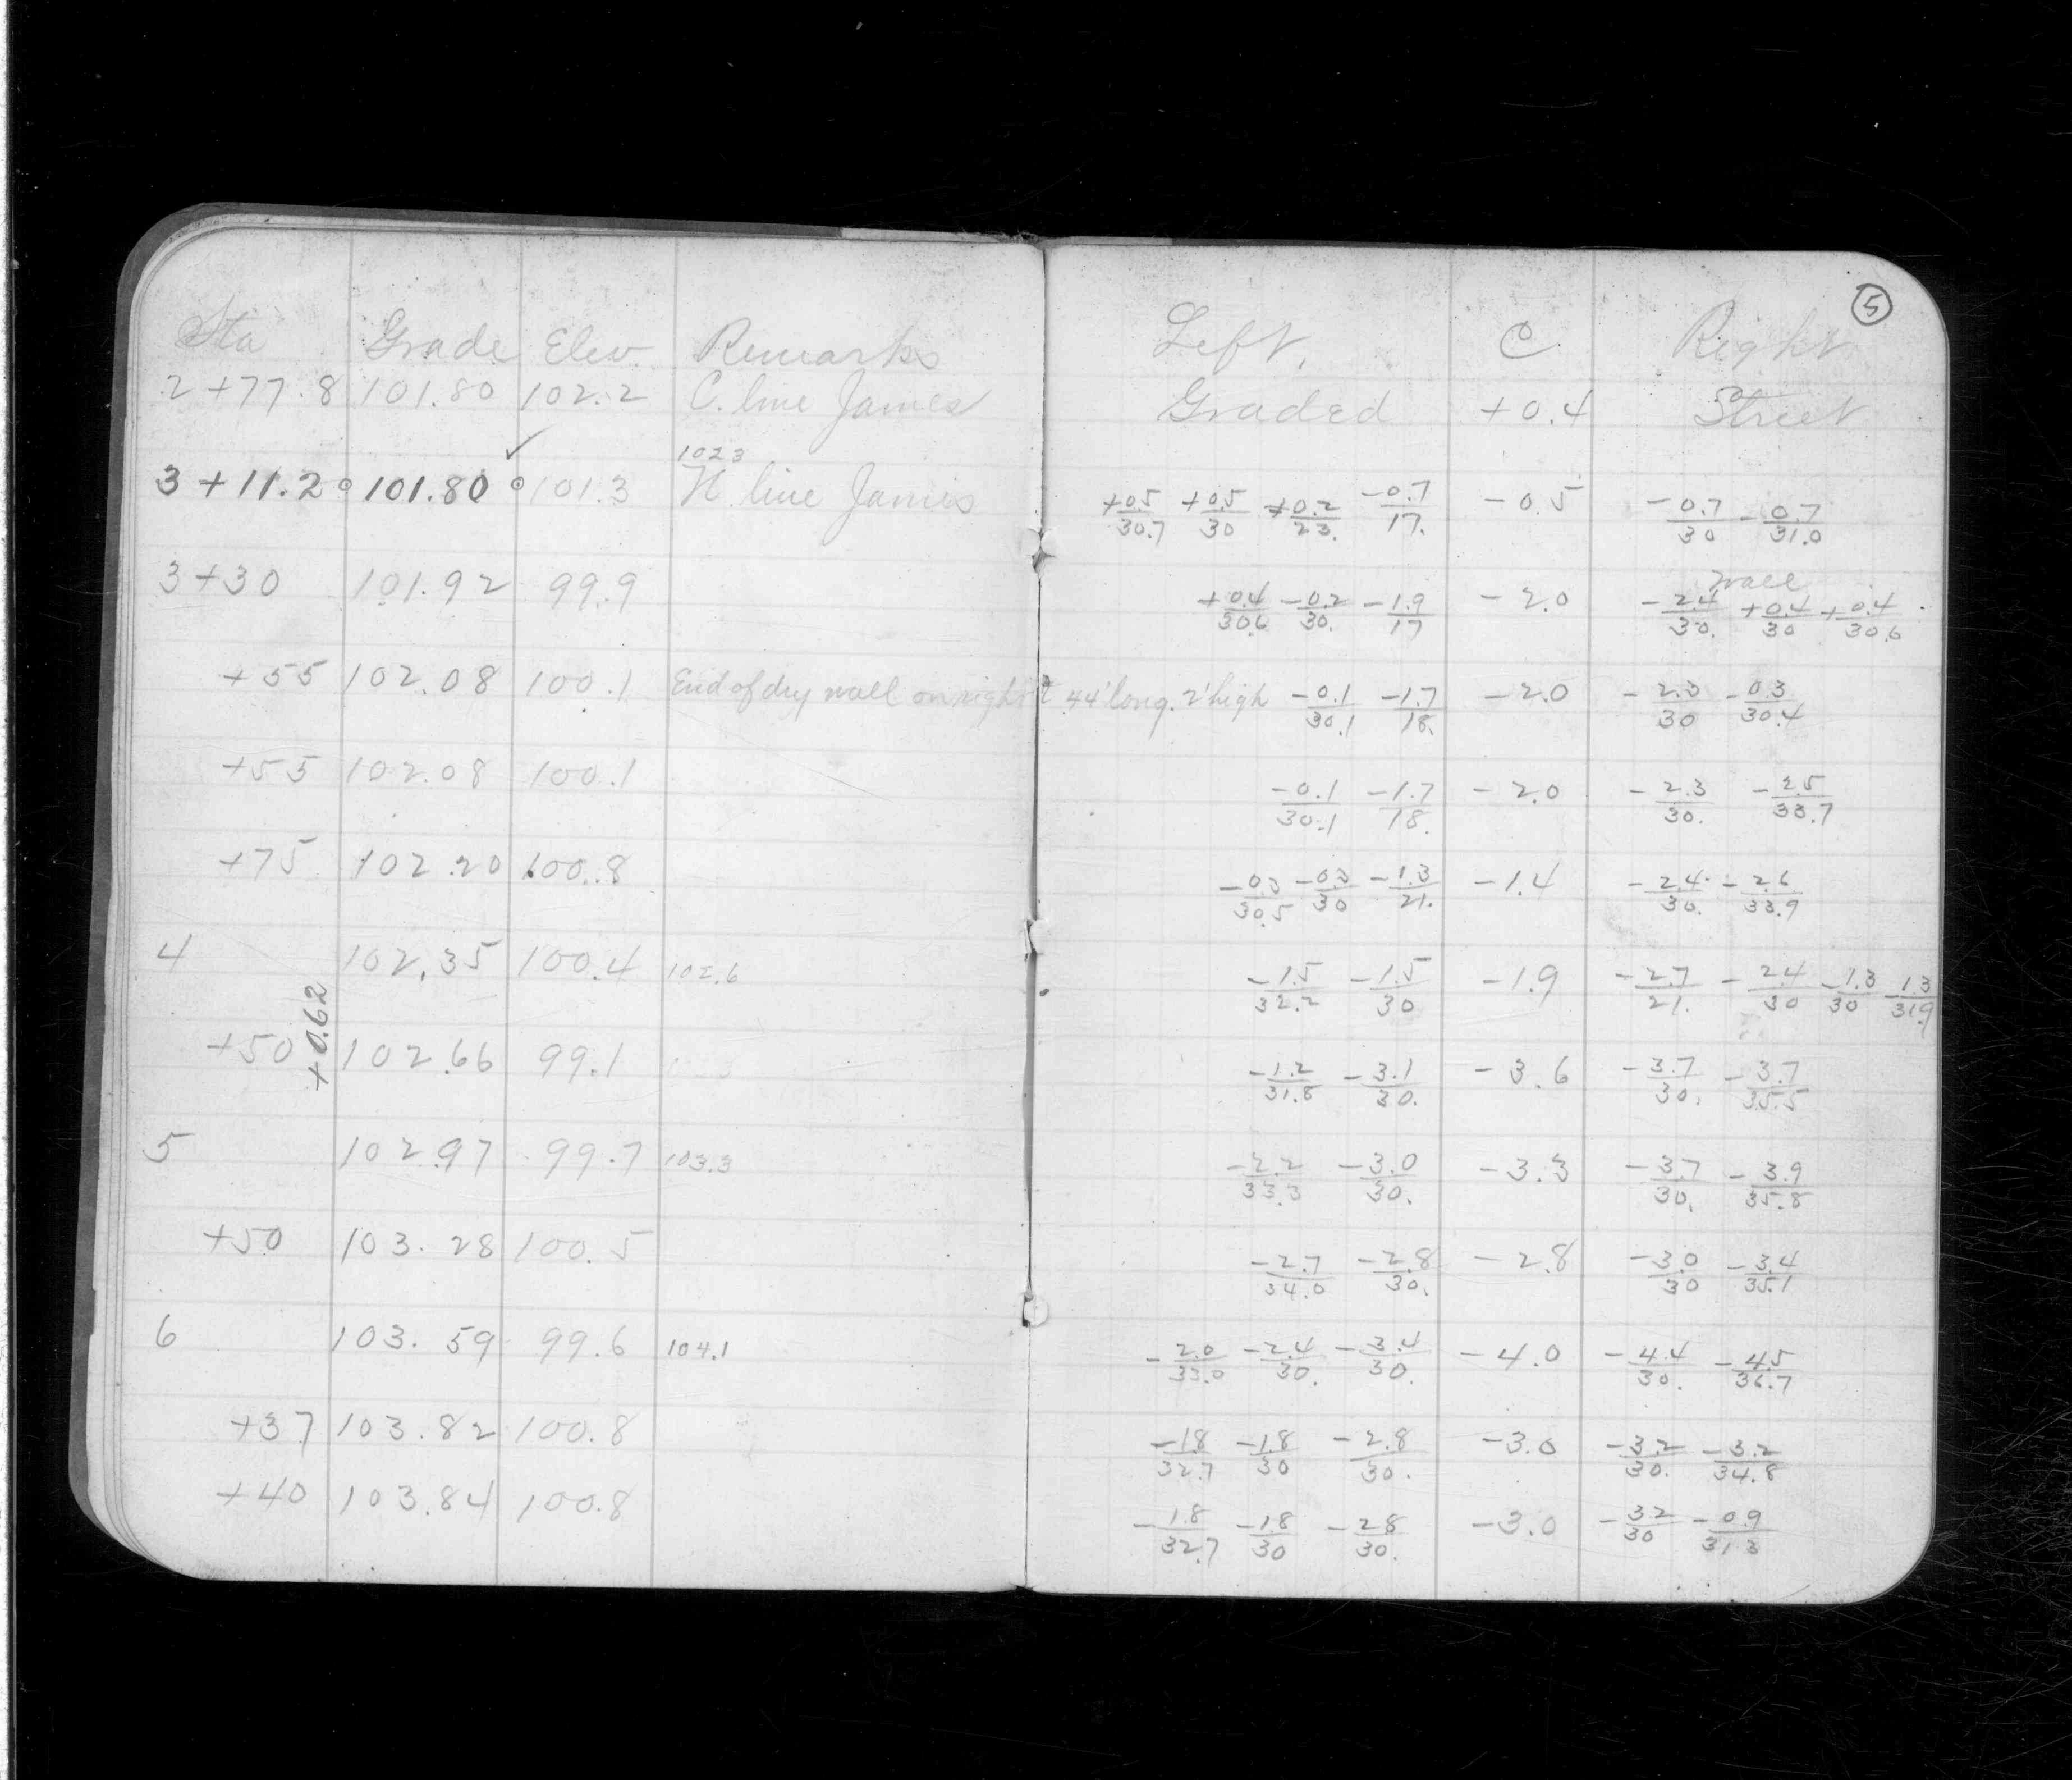 5
Sta Grade Elev. Remarks Left, C Right
2+77.8 101.80 102.2 C. line James Graded +0.4 Street
1023
3+11.2 101.80 101.3 N. line James +0.5/30.7 +0.5/30 +0.2/23. -0.7/17. -0.5 -0.7/30 -0.7/31.0
wall
3+30 101.92 99.9 +0.4/30.6 -0.2/30. -1.9/17 -2.0 -2.4/30. +0.4/30 +0.4/30.6
+55 102.08 100.1 End of dry wall on right 44' long. 2' high -0.1/30.1 -1.7/18. -2.0 -2.3/30 -0.3/30.4
+55 102.08 100.1 -0.1/30.1 -1.7/18. -2.0 -2.3/30. -2.5/33.7
+75 102.20 100.8 -0.3/30.5 -0.3/30 -1.3/21. -1.4 -2.4/30. -2.6/33.9
4 102.35 100.4 102.6 -1.5/32.2 -1.5/30 -1.9 -2.7/21. -2.4/30 -1.3/30 1.3/31.9
+0.62
+50 102.66 99.1 -1.2/31.8 -3.1/30. -3.6 -3.7/30. -3.7/35.5
5 102.97 99.7 103.3 -2.2/33.3 -3.0/30. -3.3 -3.7/30. -3.9/35.8
+50 103.28 100.5 -2.7/34.0 -2.8/30. -2.8 -3.0/30 -3.4/35.1
6 103.59 99.6 104.1 -2.0/33.0 -2.4/30. -3.4/30. -4.0 -4.4/30. -4.5/36.7
+37 103.82 100.8 -1.8/32.7 -1.8/30 -2.8/30. -3.0 -3.2/30. -3.2/34.8
+40 103.84 100.8 -1.8/32.7 -1.8/30 -2.8/30. -3.0 -3.2/30 -0.9/31.3